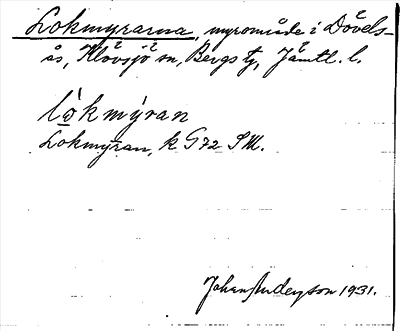 Lokmyrarna, myrområde i Dövels-
ås, Klövsjö sn, Bergs tg, Jämtl. l.
lo̲kmýran
Lokmyran, k G72 SW.
Johan Anderson 1931.